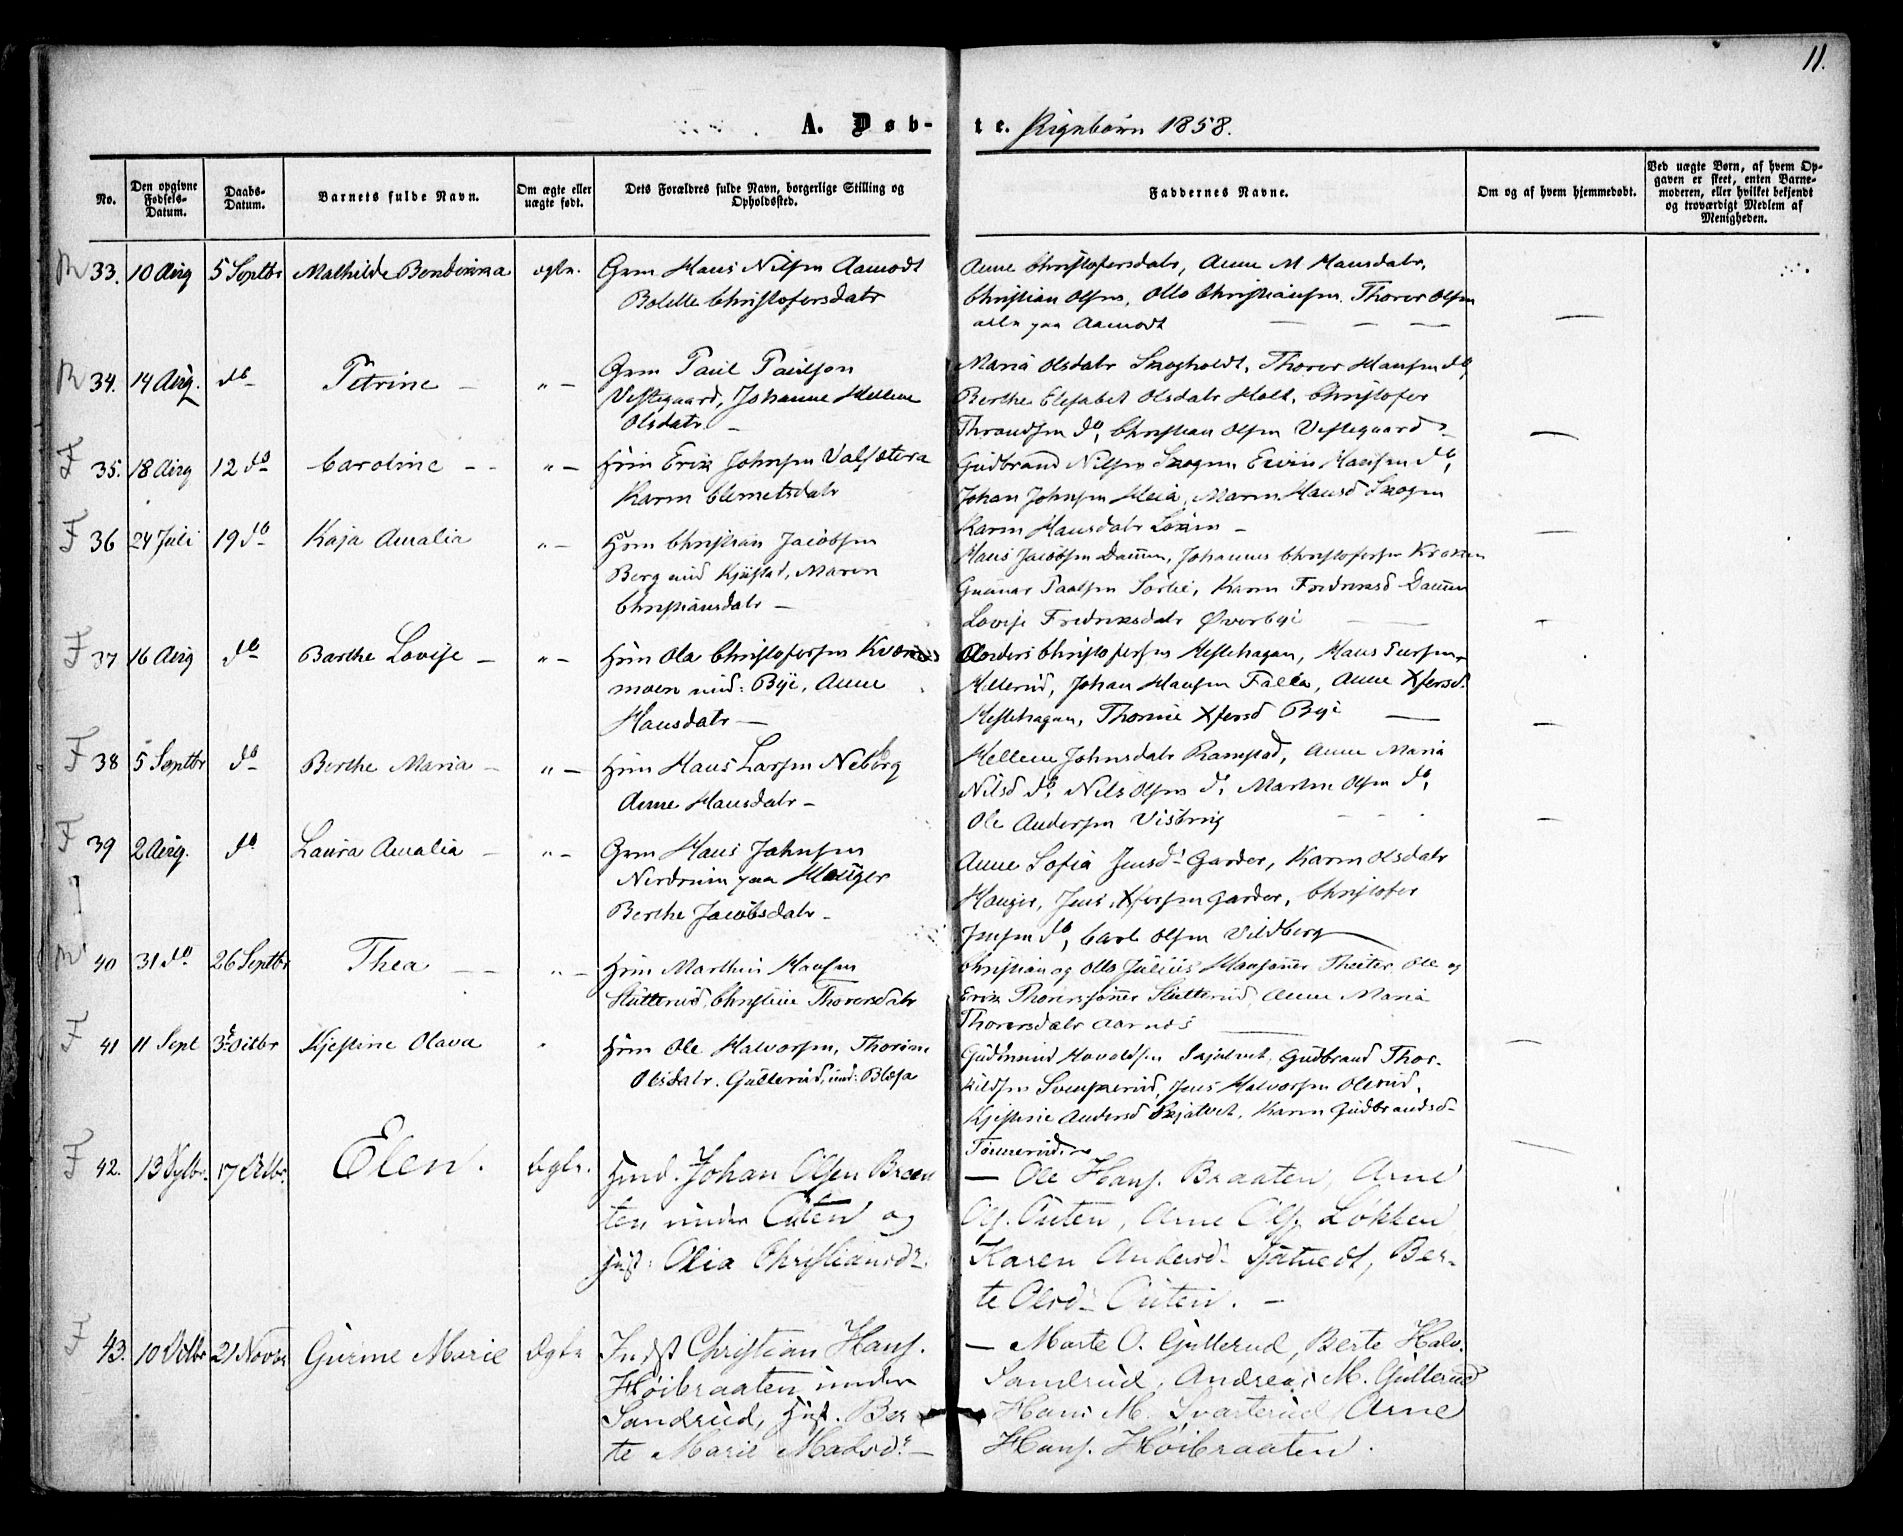 11.
A. Døb-te. Pigebørn 1858.
No.
Den opgivne Fødsels-Datum.
Daabs-Datum.
Barnets fulde Navn.
Om ægte eller uægte født.
Dets Forældres fulde Navn, borgerlige Stilling og Opholdssted.
Faddernes Navne.
Om og af hvem hjemmedøbt.
Ved uægte Børn, af hvem Opgaven er skeet, enten Barnemoderen, eller hvilket bekjendt og troværdigt Medlem af Menigheden.
33. 10 Aug 5 Septbr Mathilde egtb. Grm Hans Nilsen Aamodt
Bolette Christofersdatr
Anne Christofersdatr, Anne M Hansdatr,
Christian Olsen, Otto Christiansen, Thorer Olsen
alle paa Aamodt
34. 14 Aug. do Petrine — " — Grm Paul Paulsen
Vestegaard, Johanne Hellene
Olsdatr. —
Maria Olsdatr Skogholdt, Thorer Hansen do,
Berthe Elisabet Olsdatr Holt, Christofer
Thrandsen do, Christian Olsen Vestegaard
35. 18 Aug 12 do Caroline — — " — Hsm Erik Johnsen Valsætera
Karen Clemetsdatr
Gudbrand Nilsen Skogen Hansen do,
Johan Johnsen Heia, Maren Hansd Skogen
Karen Hansdatr —
36 24 Juli 19 do Kaja Amalia " — Hsm Christian Jacobsen
Berg und Kjustad, Maren
Christiansdatr —
Hans Jacobsen Dammen, Johannes Christofersen
Gunnar Paalsen Sørlie, Karen Fredriksd Dammen
Lovise Fredriksdatr Øverbye
37 16 Aug do Barthe Lovise — " — Hsm Ola Christofersen
moen und: Bye, Anne
Hansdatr —
Anders Christofersen Hestehagen, Hans
Hellerud, Johan Hansen Falla, Anne Xfersd.
Hestehagen, Thorine Xfersd Bye —
38 5 Septbr do Berthe Maria — " — Hsm Hans Larsen Neberg
Anne Hansdatr —
Hellene Johnsdatr Ramstad, Anne Maria
Nilsd do, Nils Olsen do, Martin Olsen do,
Ole Andersen Visberg
39 2 Aug. do Laura Amalia — " — Grm Hans Johnsen
Nordrum paa Hauger
Berthe Jacobsdatr —
Anne Sofia Jensd Garder, Karen Olsdatr
Hauger, Jens Xfersen Garder, Christofer
Jensen do, Carl Olsen Vildberg —
40 31 do 26 Septbr Thea — — " — Hsm Marthin Hansen
Slutterud, Christine Thorersdatr
Christian og Otto Julius Hansønner Theiter, Ole og
Erik Thorersønner Slutterud, Anne Maria
Thorersdatr Aarnes —
41 11 Sept 3d Octbr Kjestine Olava " Hsm Ole Halvorsen, Thorine
Olsdatr. Gullerud, und: Blæsa
Gudmund Havoldsen Sjatvet, Gudbrand Thor-
kildsen Svenkerud, Jens Halvorsen Olerud,
Kjestine Andersd Skjatvet, Karen Gudbrandsd
42. 13 17 Octbr. Elen. Egtb. Hmd. Johan Olsen Braa-
ten under Auten og
Hust: Olia Christiansdr.
— Ole Hans. Braaten, Arne
Ols. Auten, Arne Ols. Løkken
Karen Andersd. Sjatvedt, Ber-
te Olsd. Auten. —
43. 10 Octbr 21 Novbr Gurine Marie Egtb Indst Christian Hans.
Høibraaten under
Sandrud, Hust. Ber-
te Marie Madsdr. —
— Marte O. Gullerud, Berte Halv.
Sandrud, Andreas M. Gullerud
Hans M. Svarterud Arne
Hans. Høibraaten.